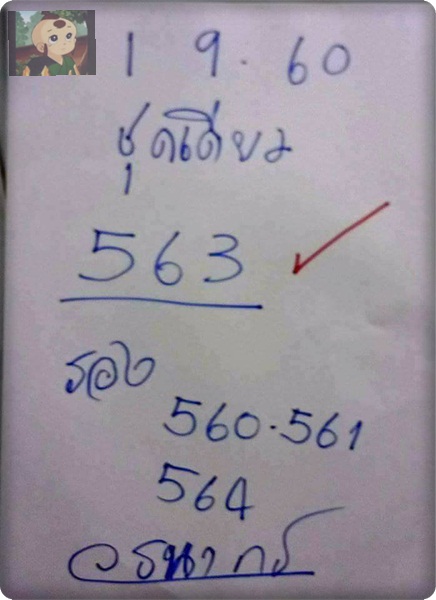 1 9. 60
ชุดเดียว
563
รอง
560.561
564